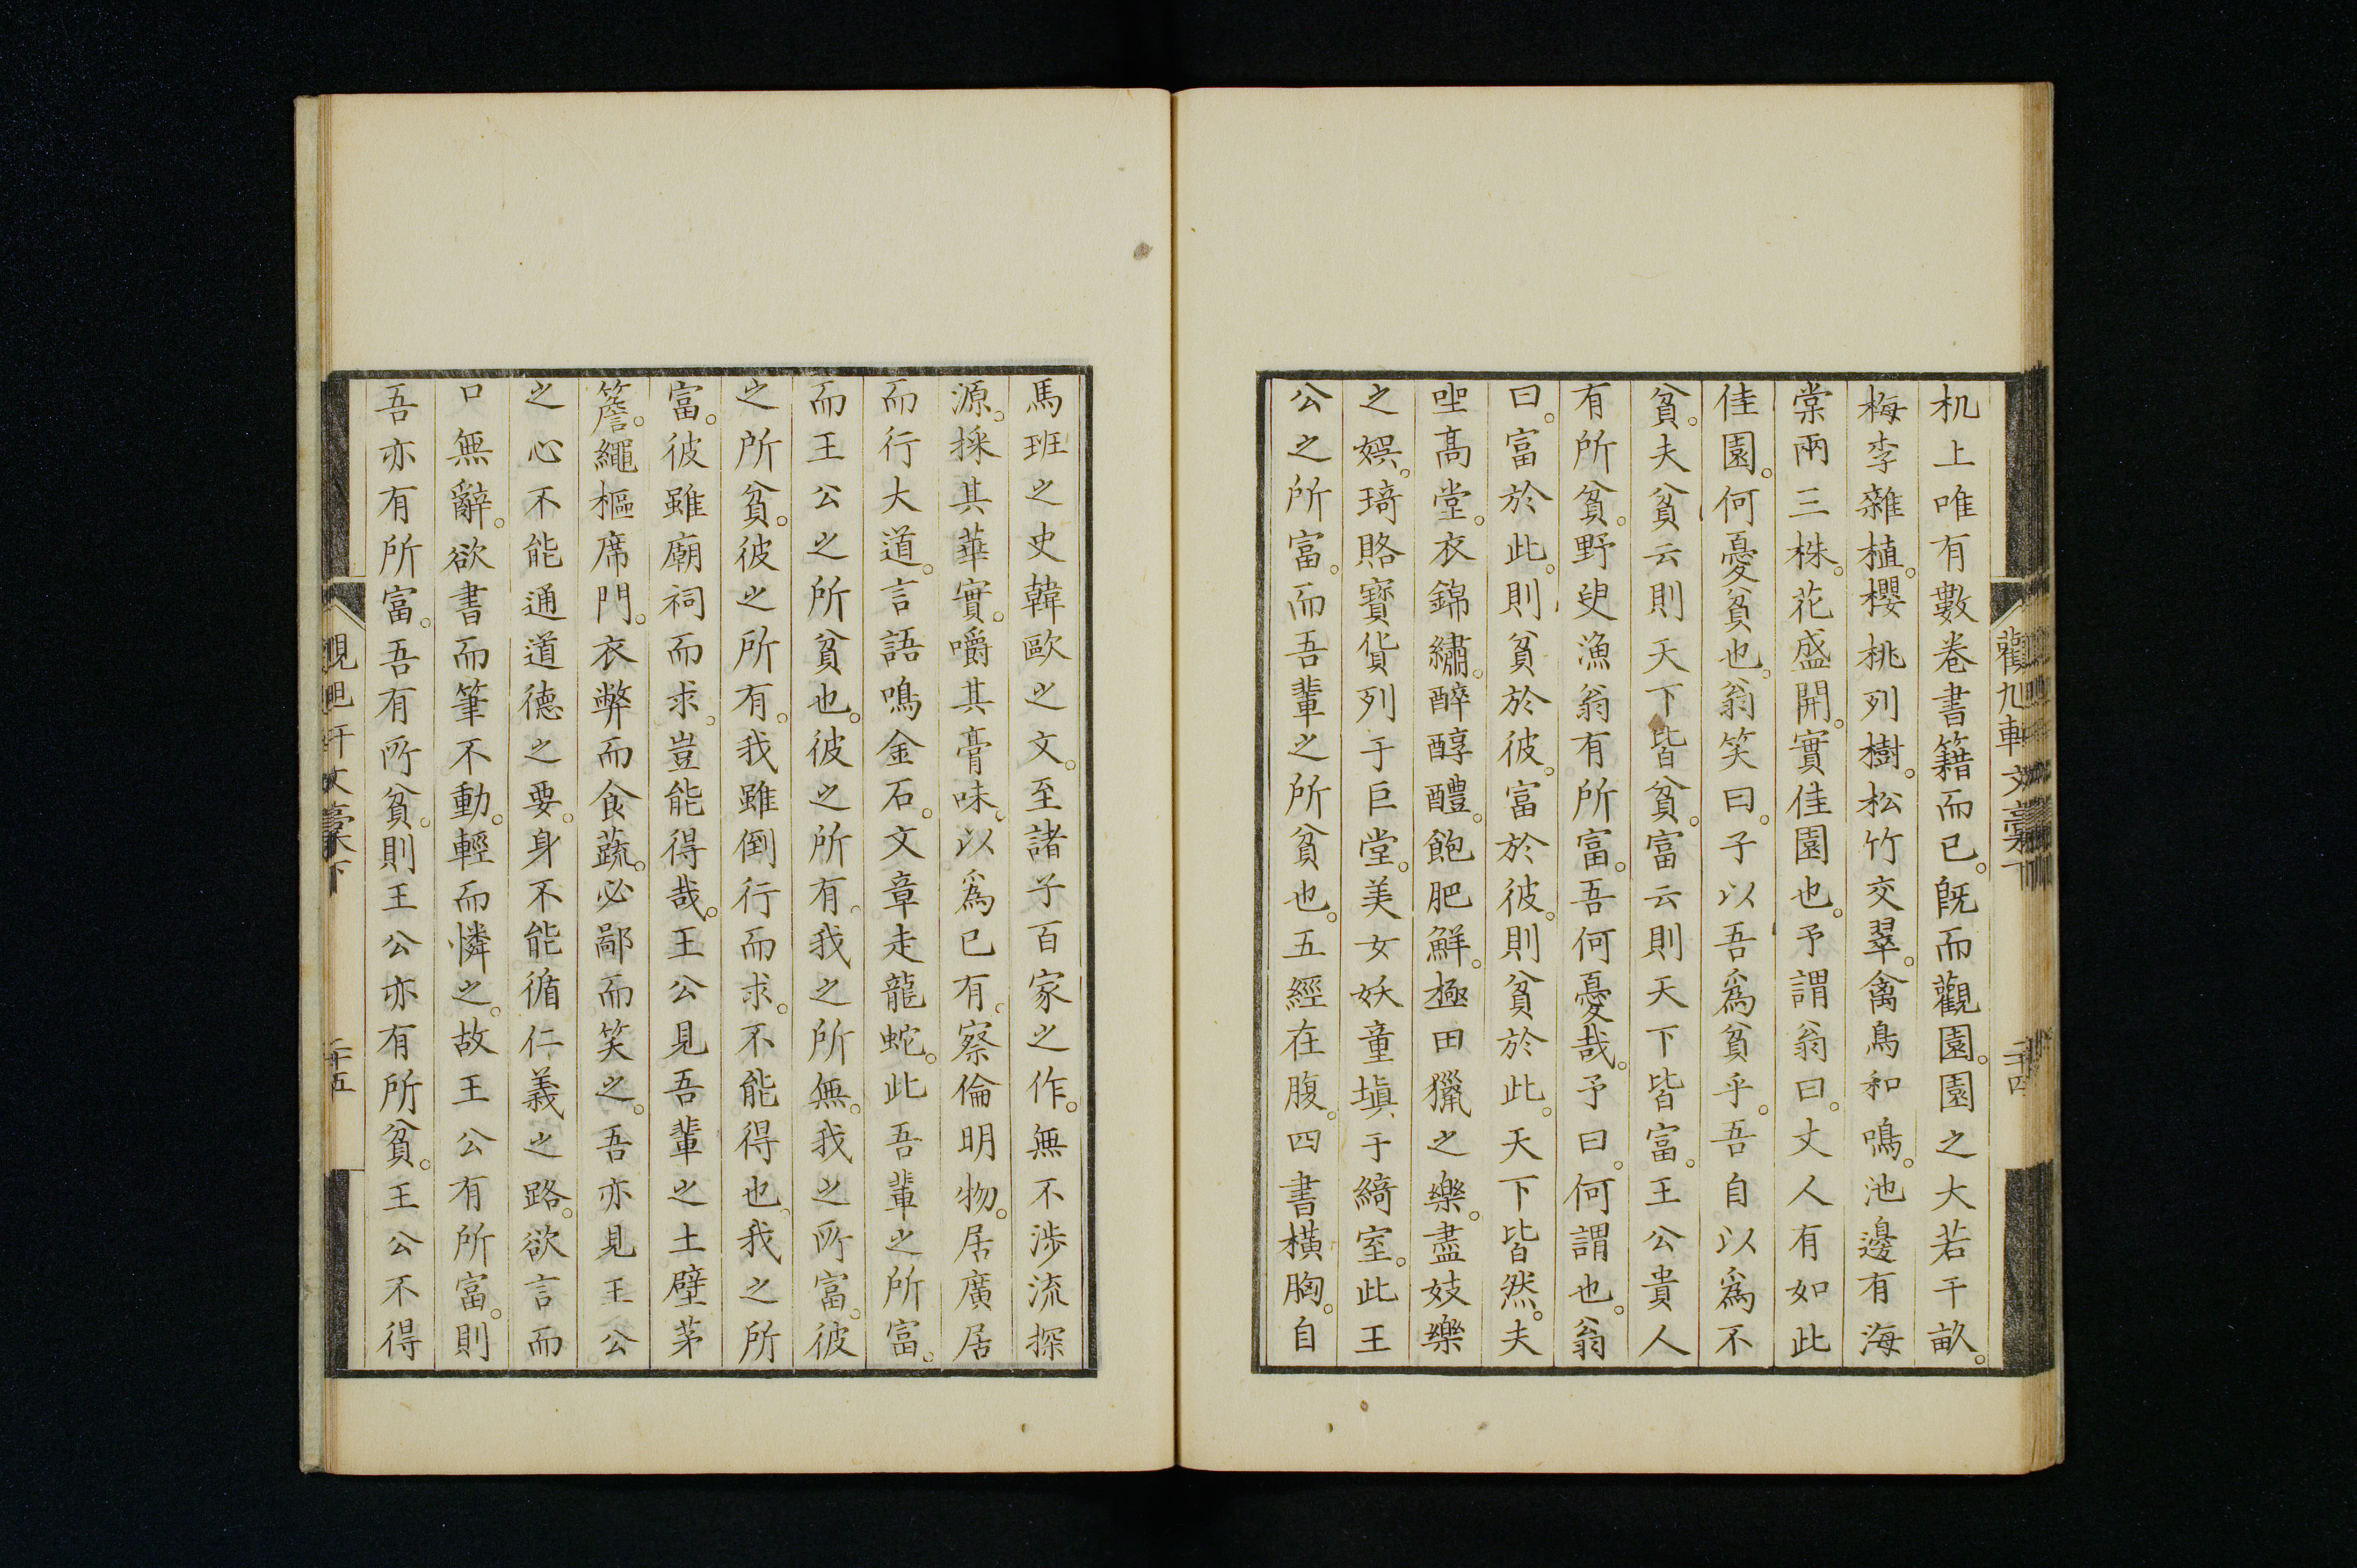 机上唯有數卷書籍而已。既而觀園。園之大若干畝。
梅李雜植。櫻桃列樹。松竹交翠。禽鳥和鳴。池邊有海
棠兩三株。花盛開。實佳園也。予謂翁曰。丈人有如此
佳園。何憂貧也。翁笑曰。子以吾爲貧乎。吾自以爲不
貧。夫貧云則天下皆貧。富云則天下皆富。王公貴人
有所貧。野叟漁翁有所富。吾何憂哉。予曰。何謂也。翁
曰。富於此。則貧於彼。富於彼。則貧於此。天下皆然。夫
坐高堂。衣錦繡。醉醇醴。飽肥鮮。極田獵之樂。盡妓樂
之娯。琦賂寶貨列于巨堂。美女妖童塡于綺室。此王
公之所富。而吾輩之所貧也。五經在腹。四書橫胸。自
馬班之史韓歐之文。至諸子百家之作。無不渉流探
源。採其華實。嚼其膏味。以爲己有。察倫明物。居廣居
而行大道。言語鳴金石。文章走龍蛇。此吾輩之所富。
而王公之所貧也。彼之所有。我之所無。我之所富。彼
之所貧。彼之所有。我雖倒行而求。不能得也。我之所
富。彼雖廟祠而求。豈能得哉。王公見吾輩之土壁茅
簷。繩樞席門。衣弊而食蔬。必鄙而笑之。吾亦見王公
之心不能通道德之要。身不能循仁義之路。欲言而
口無辭。欲書而筆不動。輕而憐之。故王公有所富。則
吾亦有所富。吾有所貧。則王公亦有所貧。王公不得